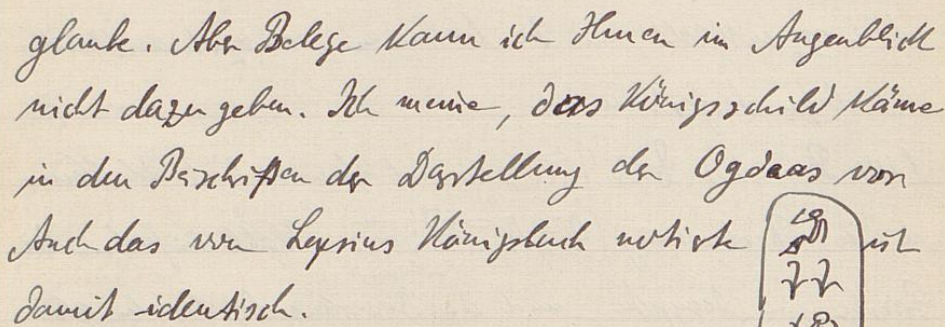 glaube. Aber Belege kann ich Ihnen im Augenblick
nicht dazu geben. Ich meine, das Königsschild käme
in den Beischriften der Darstellung der Ogdoas vor
Auch das von Lepsius Königsbuch notirte ist
damit identisch.